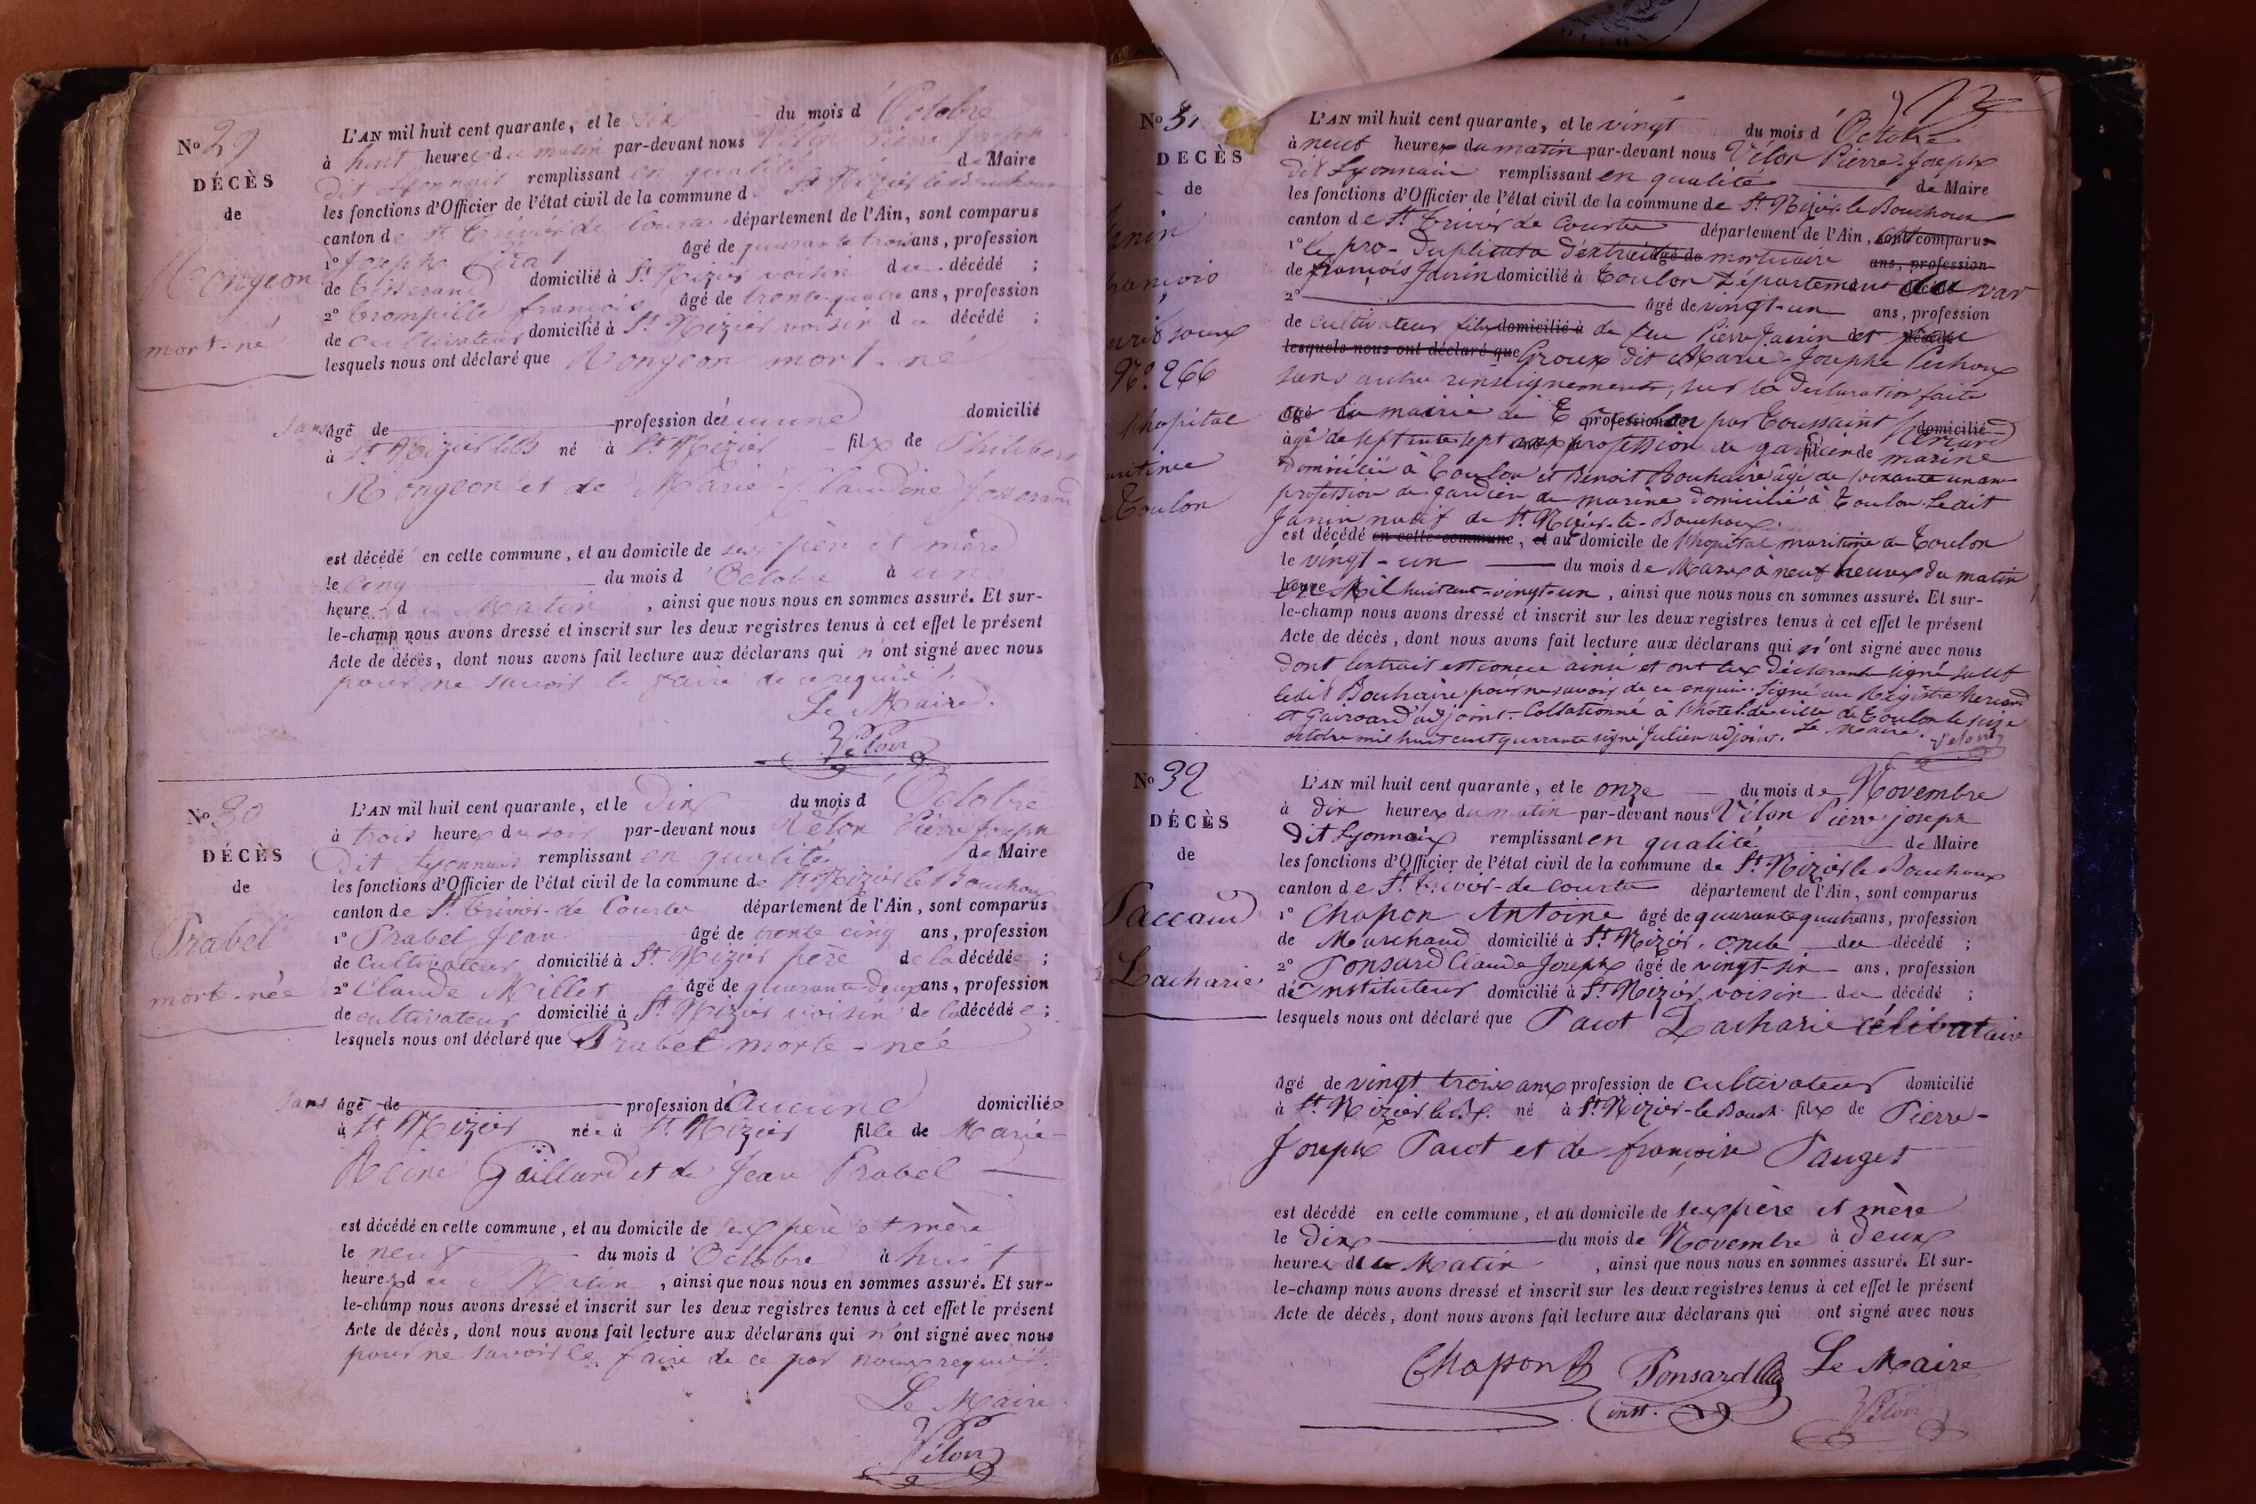 No 29
DÉCÈS
de
Rongeon
mort-né
L'AN mil huit cent quarante, et le six du mois d'Octobre
à huit heures du matin par-devant nous Vélon Pierre Joseph
dit Lyonnais remplissant en qualité de Maire
les fonctions d'Officier de l'état civil de la commune de St Nizier le Bouchoux
canton de St Trivier de Courtes département de l'Ain, sont comparus
1° Joseph âgé de quarante trois ans, profession
de Tisserand domicilié à St Nizier voisin du décédé ;
2° Trompille françois âgé de trente quatre ans, profession
de cultivateur domicilié à St Nizier voisin du décédé ;
lesquels nous ont déclaré que Rongeon mort-né
sans âgé de profession d'aucune domicilié
à St Nizier né à St Nizier fils de Philibert
Rongeon et de Marie Claudine Josserand
est décédé en cette commune, et au domicile de ses père et mère
le cinq du mois d'Octobre à une
heure du Matin, ainsi que nous nous en sommes assuré. Et sur-
le-champ nous avons dressé et inscrit sur les deux registres tenus à cet effet le présent
Acte de décès, dont nous avons fait lecture aux déclarans qui n'ont signé avec nous
pour ne savoir le faire de ce requis.
Le Maire
Vélon
No 30
DÉCÈS
de
Prabel
morte-née
L'AN mil huit cent quarante, et le Dix du mois d'Octobre
à trois heures du soir par-devant nous Vélon Pierre Joseph
Dit Lyonnais remplissant en qualité de Maire
les fonctions d'Officier de l'état civil de la commune de St Nizier le Bouchoux
canton de St Trivier-de Courtes département de l'Ain, sont comparus
1° Prabel Jean âgé de trente cinq ans, profession
de cultivateur domicilié à St Nizier père de la décédée ;
2° Claude Millet âgé de quarante-deux ans, profession
de cultivateur domicilié à St Nizier voisin de la décédée ;
lesquels nous ont déclaré que Prabel morte-née
sans âgé de profession d'Aucune domiciliée
à St Nizier née à St Nizier fille de Marie
Reine Gaillard et de Jean Prabel
est décédé en cette commune, et au domicile de ses père et mère
le neuf du mois d'Octobre à huit
heures du Matin, ainsi que nous nous en sommes assuré. Et sur-
le-champ nous avons dressé et inscrit sur les deux registres tenus à cet effet le présent
Acte de décès, dont nous avons fait lecture aux déclarans qui n'ont signé avec nous
pour ne savoir le faire de ce par nous requis.
Le Maire
Vélon
No 31
DÉCÈS
de
Janin
françois
sous
No 266
l'hopital
maritime
Toulon
L'AN mil huit cent quarante, et le vingt du mois d'Octobre
à neuf heures du matin par-devant nous Vélon Pierre Joseph
dit Lyonnais remplissant en qualité de Maire
les fonctions d'Officier de l'état civil de la commune de St Nizier le Bouchoux
canton de St Trivier de Courtes département de l'Ain, sont comparus
1° le pro-Duplicata d'extrait âgé de mortuaire ans, profession
de françois Janin domicilié à Toulon Département du var
2° âgé de vingt-un ans, profession
de cultivateur fils domicilié à de feu Pierre Janin et de
lesquels nous ont déclaré que Groux dit Marie-Josephe Pichoux
sans autre renseignements, sur la declaration faite
âgé à la mairie de Toulon profession de par Toussaint domicilié
âgé de septante sept ans profession de gardien fils de marine
domicilié à Toulon et Benoit Bouhaire âgé de soixante un ans
profession de gardien de marine domicilié à Toulon. Ledit
Janin natif de St Nizier-le-Bouchoux.
est décédé en cette commune, et au domicile de l'hopital maritime de Toulon
le vingt-un du mois de Mars à neuf heures du matin
heure Mil huit cent-vingt-un, ainsi que nous nous en sommes assuré. Et sur-
le-champ nous avons dressé et inscrit sur les deux registres tenus à cet effet le présent
Acte de décès, dont nous avons fait lecture aux déclarans qui n'ont signé avec nous
Dont l'extrait est conçu ainsi et ont les Déclarants signé sauf
ledit Bouhaire pour ne savoir de ce enquis. Signé au Registre
et adjoint. Collationné à l'hotel-de-ville de Toulon le seize
octobre mil huit cent quarante signé Julien adjoint. Le Maire.
Vélon
No 32
DÉCÈS
de
Paccaud
Zacharie
L'AN mil huit cent quarante, et le onze du mois de Novembre
à dix heures du matin par-devant nous Vélon Pierre joseph
Dit Lyonnais remplissant en qualité de Maire
les fonctions d'Officier de l'état civil de la commune de St Nizier le Bouchoux
canton de St Trivier-de Courtes département de l'Ain, sont comparus
1° Chapon Antoine âgé de quarante quatre ans, profession
de Marchand domicilié à St Nizier, oncle du décédé ;
2° Ponsard Claude Joseph âgé de vingt-six ans, profession
d'Instituteur domicilié à St Nizier voisin du décédé ;
lesquels nous ont déclaré que Pacot Zacharie célibataire
âgé de vingt trois ans profession de cultivateur domicilié
à St Nizier le B. né à St Nizier-le Bouch. fils de Pierre-
Joseph Pacot et de françoise Pauget
est décédé en cette commune, et au domicile de ses père et mère
le Dix du mois de Novembre à Deux
heures du Matin, ainsi que nous nous en sommes assuré. Et sur-
le-champ nous avons dressé et inscrit sur les deux registres tenus à cet effet le présent
Acte de décès, dont nous avons fait lecture aux déclarans qui ont signé avec nous
Chapon Ponsard Le Maire
inst. Vélon